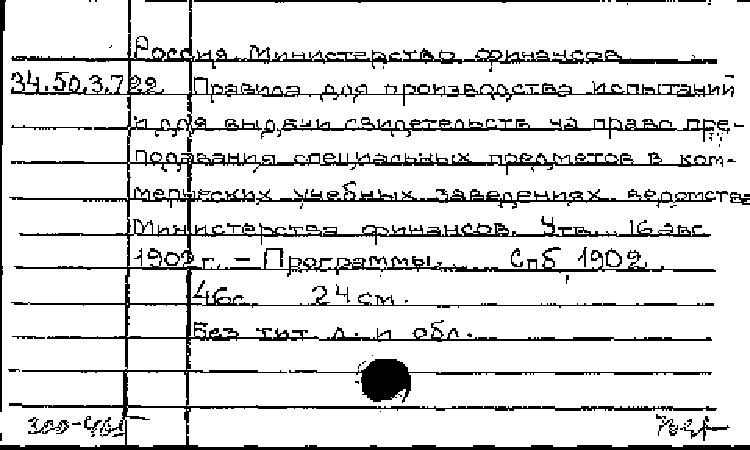 Россия. Министерство финансов
34.50.3.722 Правила для производства испытаний
и для выдачи свидетельств на право пре-
подавания специальных предметов в ком-
мерческих учебных заведениях ведомства
Министерства финансов. Утв. 16 авг.
1902 г. - Программы. Спб 1902.
46с. 24 см.
Без тит. л. и обл.
300-